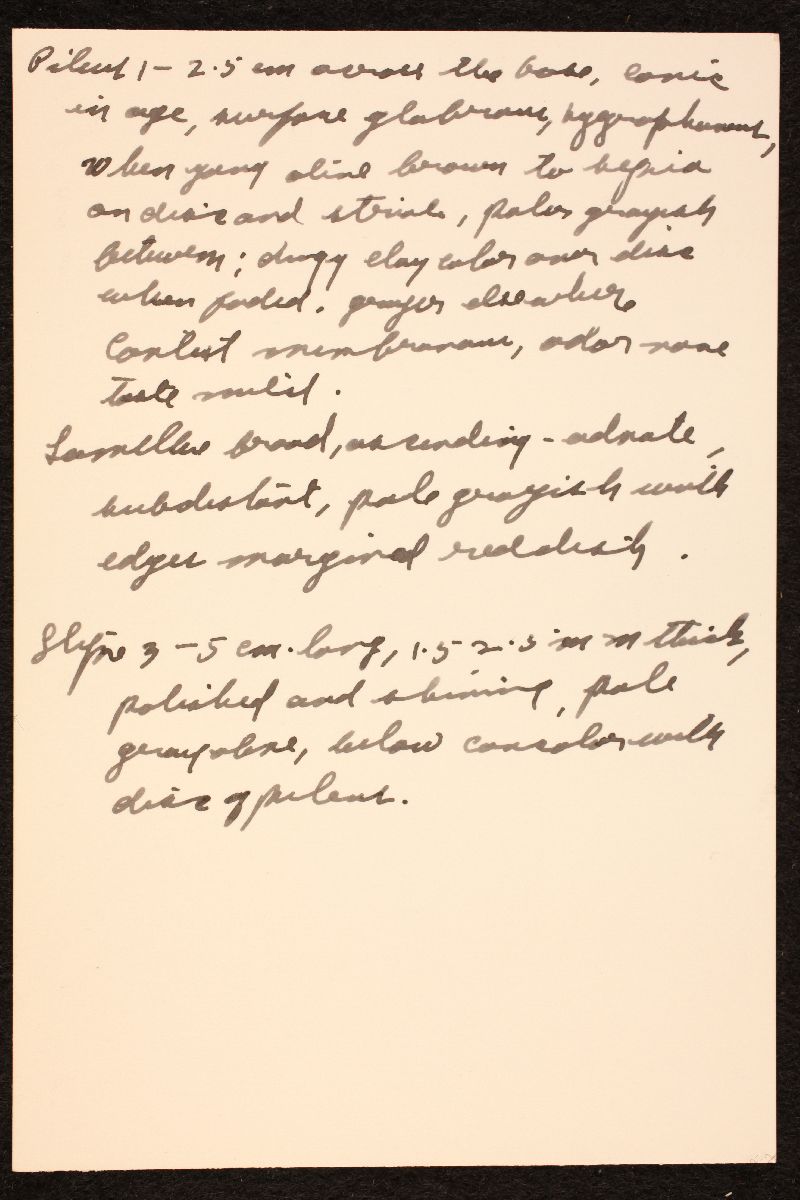 Pileus 1 – 2.5 cm across the base, conic
in age, surface glabrous, hygrophanous,
when young olive brown to sepia
on disc and striae, paler grayish
between; dingy clay color over disc
when faded. grayer elsewhere
Context membranous, odor none
taste mild.
Lamellae broad, ascending - adnate,
subdistant, pale grayish with
edges margined reddish.
Stipe 3 – 5 cm. long, 1.5 2.5 mm thick,
polished and shining, pale
gray olive, below concolor with
disc of pileus.